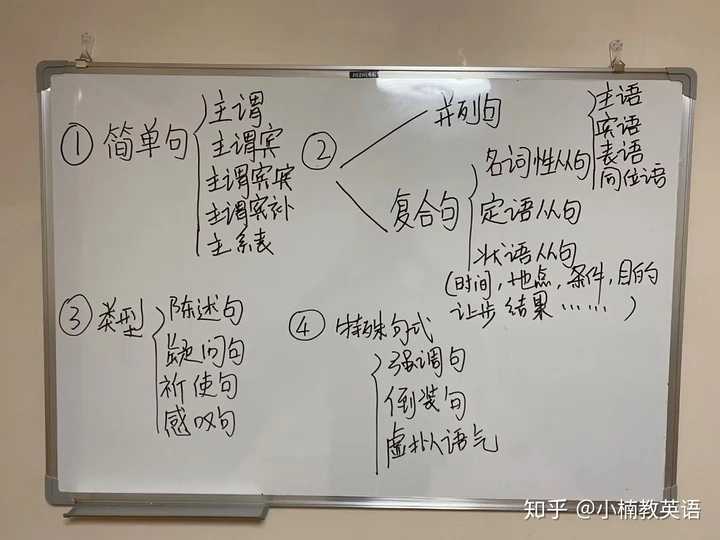 ① 简单句
主谓
主谓宾
主谓宾宾
主谓宾补
主系表
②
并列句
复合句
名词性从句
主语
宾语
表语
同位语
定语从句
状语从句
(时间,地点,条件,目的
让步 结果 ……)
③ 类型
陈述句
疑问句
祈使句
感叹句
④ 特殊句式
强调句
倒装句
虚拟语气
知乎 @小楠教英语